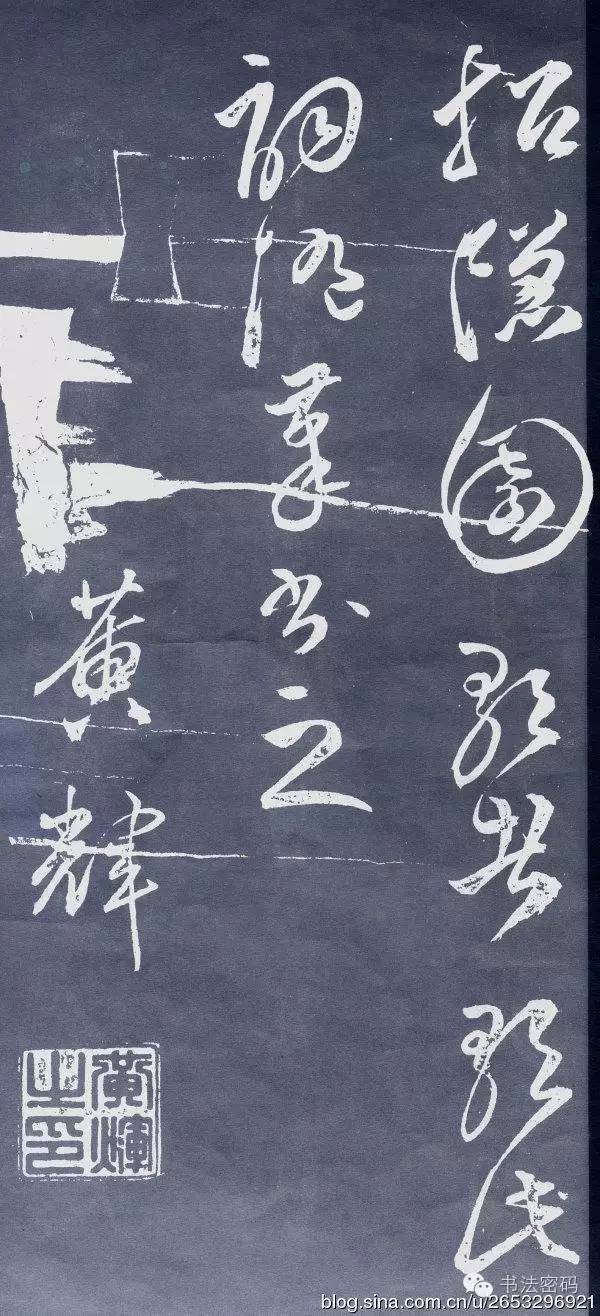 招隱園歌者歌此
詞隨筆書之
黃輝
黃輝之印
书法密码
blog.sina.com.cn/u/2653296921